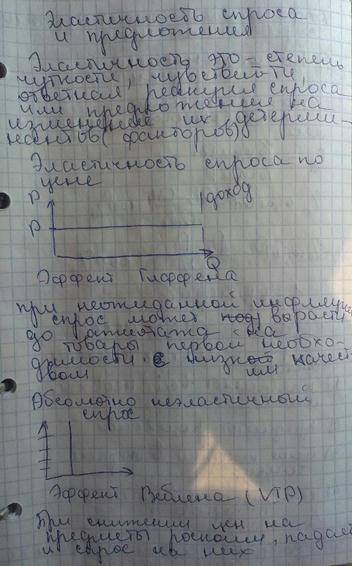 Эластичность спроса
и предложения
Эластичность это – степень
чуткости, чувствит-ти,
ответная реакция спроса
или предложения на
изменение их детерми-
нантов (факторов)
Эластичность спроса по
цене
P |доход
P
Q
Эффект Гиффена
При неожиданной инфляции
спрос может вырасти
до ажиотажа на
товары первой необхо-
димости с низким качест-
вом
Абсолютно неэластичный
спрос
Эффект Веблена (VIP)
При снижении цен на
предметы роскоши, падает
и спрос на них